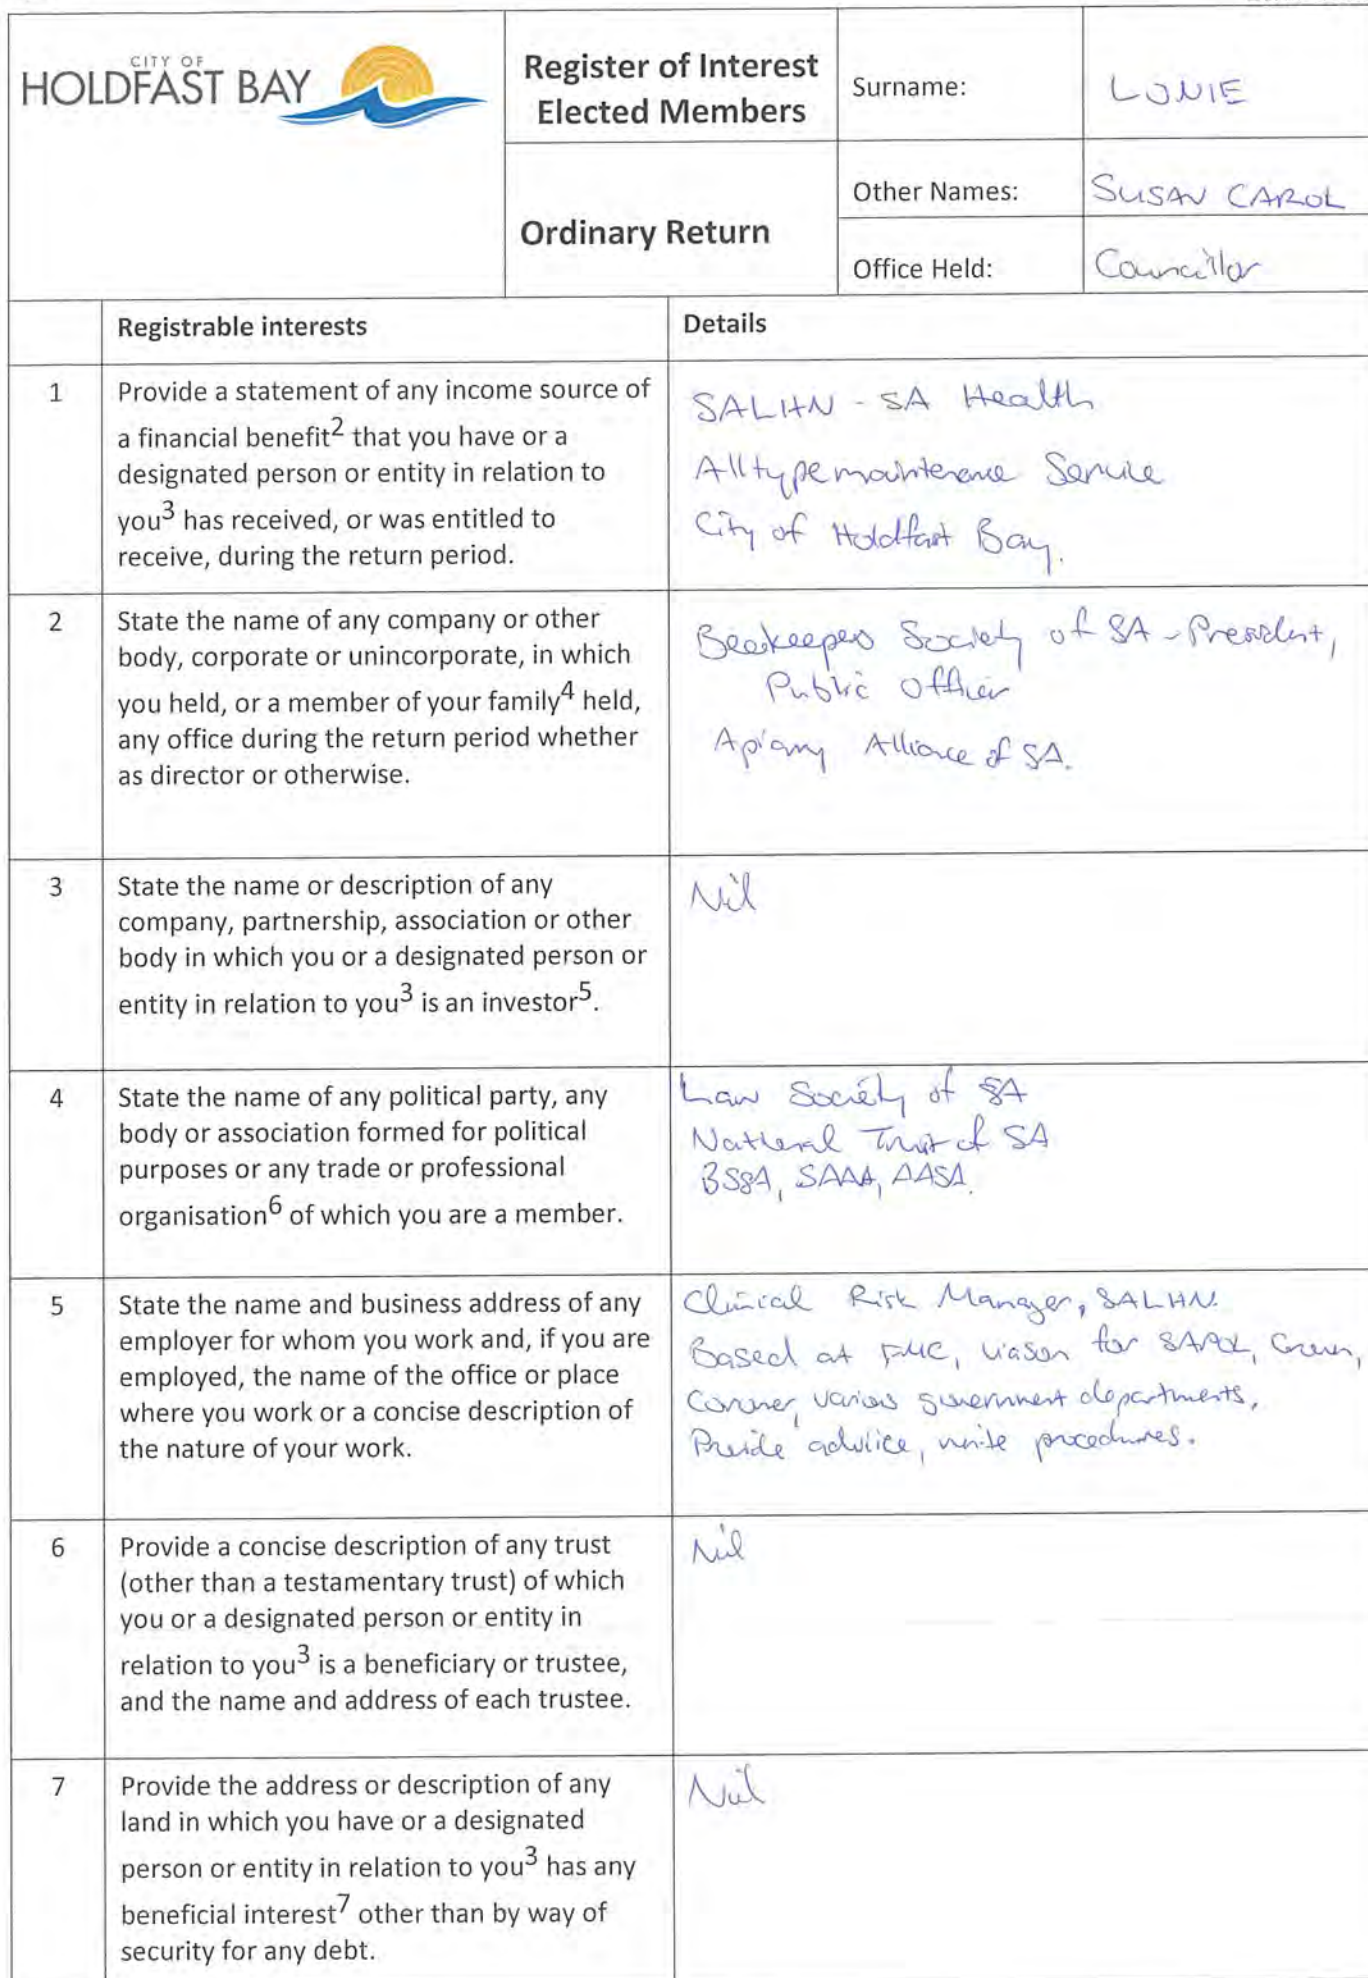 CITY OF
HOLDFAST BAY
Register of Interest
Elected Members
Surname:
LONIE
Ordinary Return
Other Names:
SUSAN CAROL
Office Held:
Councillor
Registrable interests
Details
1
Provide a statement of any income source of
a financial benefit2 that you have or a
designated person or entity in relation to
you3 has received, or was entitled to
receive, during the return period.
SALHN - SA Health
Alltypemaintenance Service
City of Holdfast Bay.
2
State the name of any company or other
body, corporate or unincorporate, in which
you held, or a member of your family4 held,
any office during the return period whether
as director or otherwise.
Beekeepers Society of SA - President,
Public Officer
Apiary Alliance of SA.
3
State the name or description of any
company, partnership, association or other
body in which you or a designated person or
entity in relation to you3 is an investor5.
Nil
4
State the name of any political party, any
body or association formed for political
purposes or any trade or professional
organisation6 of which you are a member.
Law Society of SA
National Trust of SA
BSSA, SAAA, AASA.
5
State the name and business address of any
employer for whom you work and, if you are
employed, the name of the office or place
where you work or a concise description of
the nature of your work.
Clinical Risk Manager, SALHN.
Based at FMC, liason for SAPOL, Crown,
Coroner, various government departments,
Provide advice, write procedures.
6
Provide a concise description of any trust
(other than a testamentary trust) of which
you or a designated person or entity in
relation to you3 is a beneficiary or trustee,
and the name and address of each trustee.
Nil
7
Provide the address or description of any
land in which you have or a designated
person or entity in relation to you3 has any
beneficial interest7 other than by way of
security for any debt.
Nil